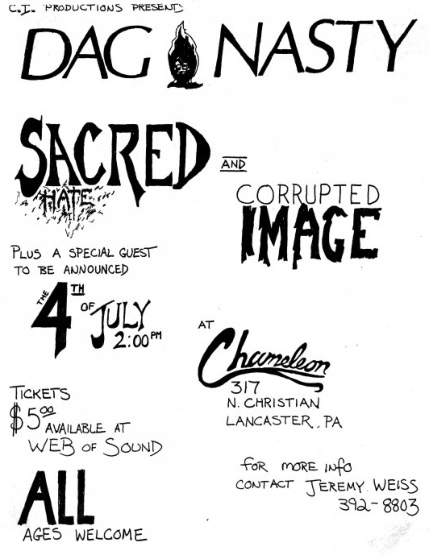 C.I. PRODUCTIONS PRESENT:
DAG NASTY
SACRED
HATE
AND
CORRUPTED
IMAGE
PLUS A SPECIAL GUEST
TO BE ANNOUNCED
THE 4TH OF JULY
2:00 PM
AT
Chameleon
317
N. CHRISTIAN
LANCASTER, PA
TICKETS
$5.00 AVAILABLE AT
WEB OF SOUND
ALL
AGES WELCOME
FOR MORE INFO
CONTACT JEREMY WEISS
392-8803